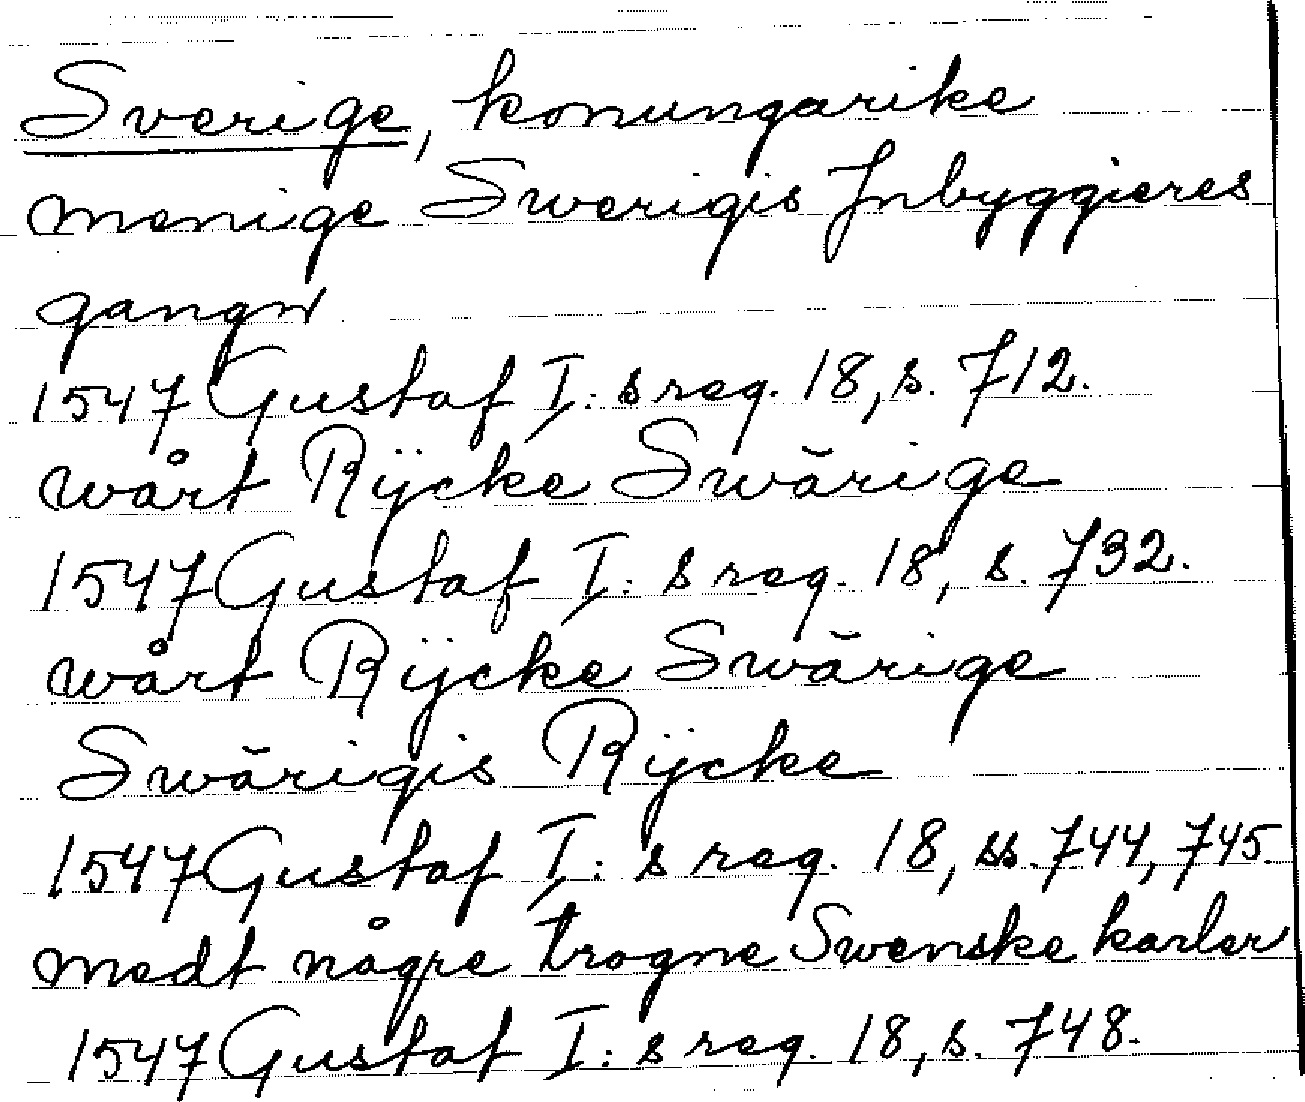 Sverige, konungarike
menige Swerigis Jnbyggieres
gangn
1547 Gustaf I: s reg. 18, s. 712.
wårt Rÿcke Swärige
1547 Gustaf I: s reg. 18, s. 732.
wårt Rÿcke Swärige
Swärigis Rÿcke
1547 Gustaf I: s reg. 18, ss. 744, 745
medt någre trogne Swenske karler
1547 Gustaf I: s reg. 18, s. 748.